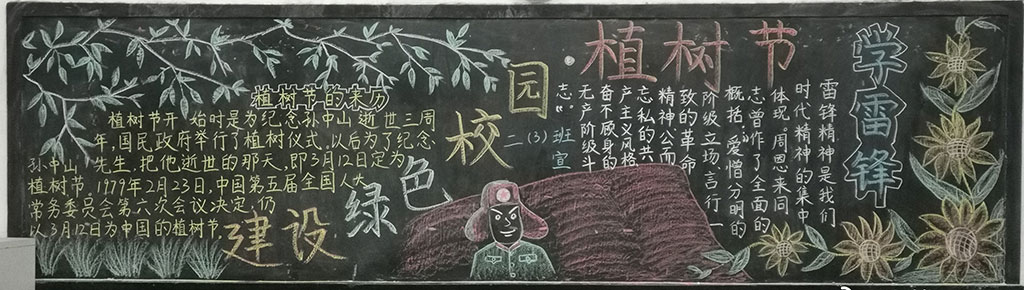 植树节的来历
植树节开始时是为纪念孙中山逝世三周
年,国民政府举行了植树仪式,以后为了纪念
孙中山先生,把他逝世的那天,即3月12日定为
植树节。1979年2月23日,中国第五届全国人大
常务委员会第六次会议决定,仍
以3月12日为中国的植树节。
建设绿色校园
二(3)班宣
植树节
学雷锋
雷锋精神是我们
时代精神的集中
体现。周恩来同
志曾作了全面的
概括“爱憎分明的
阶级立场、言行一
致的革命
精神公而
忘私的共
产主义风格
奋不顾身的
无产阶级斗
志。”